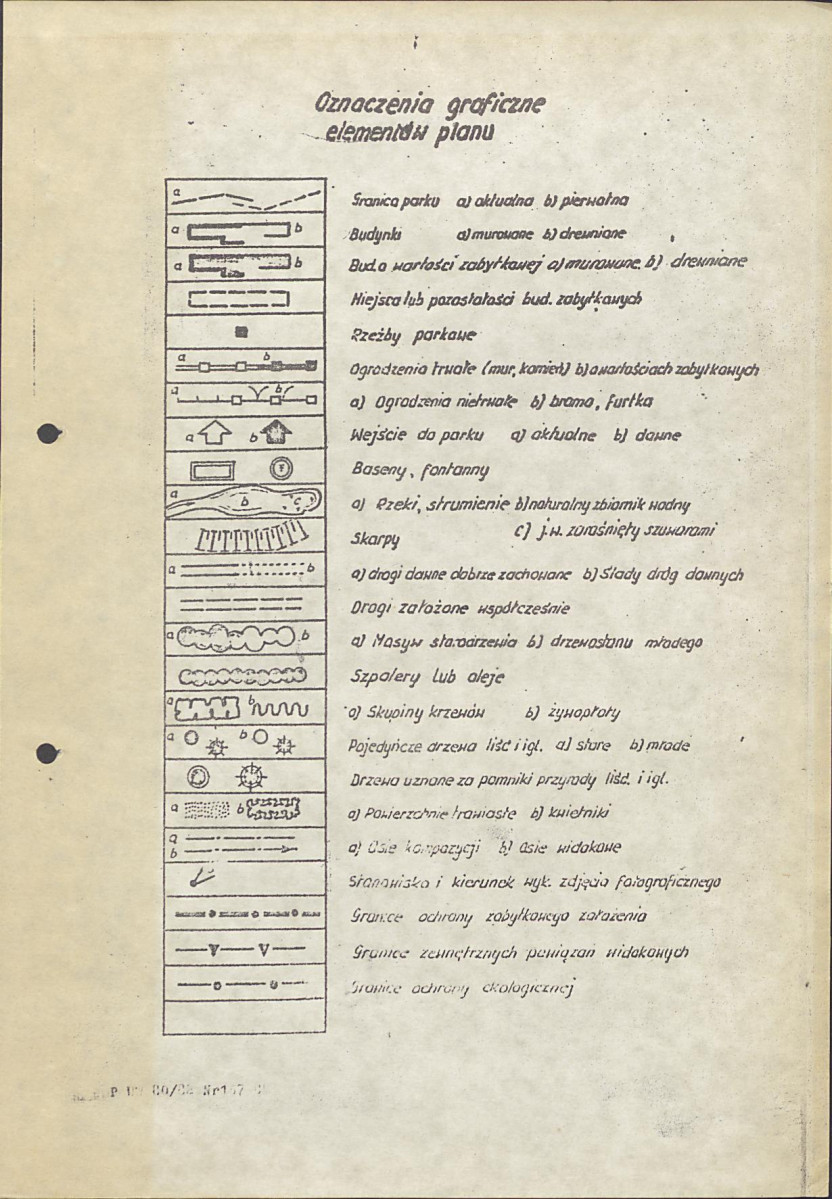 Oznaczenia graficzne
elementów planu
a
Granica parku a) aktualna b) pierwotna
a b
Budynki a) murowane b) drewniane
a b
Bud. o wartości zabytkowej a) murowane b) drewniane
Miejsca lub pozostałości bud. zabytkowych
Rzeźby parkowe
a b
Ogrodzenia trwałe (mur, kamień) b) o wartościach zabytkowych
a b
a) Ogrodzenia nietrwałe b) brama, furtka
a b
Wejście do parku a) aktualne b) dawne
Baseny, fontanny
a b c
a) Rzeki, strumienie b) naturalny zbiornik wodny
c) j.w. zarośnięty szuwarami
Skarpy
a b
a) drogi dawne dobrze zachowane b) Ślady dróg dawnych
Drogi założone współcześnie
a b
a) Masyw starodrzewia b) drzewostanu młodego
Szpalery lub aleje
a b
a) Skupiny krzewów b) żywopłoty
a b
Pojedyńcze drzewa liść i igl. a) stare b) młode
Drzewa uznane za pomniki przyrody liść. i igl.
a b
a) Powierzchnie trawiaste b) kwietniki
a
b
a) Osie kompozycji b) Osie widokowe
Stanowisko i kierunek wyk. zdjęcia fotograficznego
Granice ochrony zabytkowego założenia
Granice zewnętrznych powiązań widokowych
Granice ochrony ekologicznej